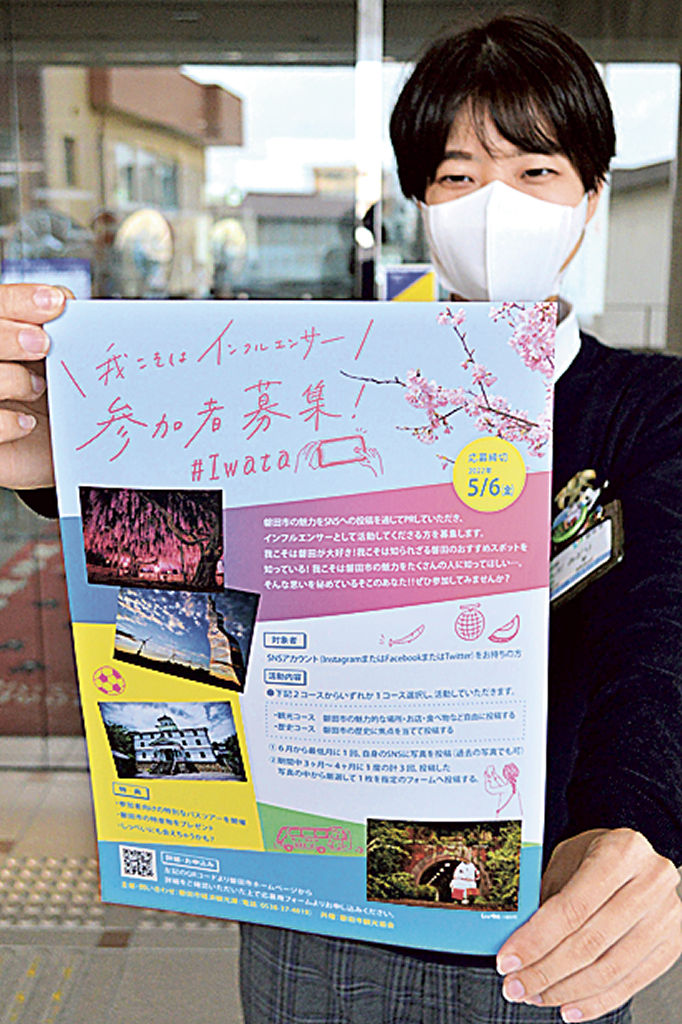 我こそはインフルエンサー
参加者募集!
#Iwata
応募締切
2022年
5/6(金)
磐田市の魅力をSNSへの投稿を通じてPRしていただき、
インフルエンサーとして活動してくださる方を募集します。
我こそは磐田が大好き!我こそは知られざる磐田のおすすめスポットを
知っている!我こそは磐田市の魅力をたくさんの人に知ってほしい…。
そんな思いを秘めているそこのあなた!!ぜひ参加してみませんか?
対象者
SNSアカウント(InstagramまたはFacebookまたはTwitter)をお持ちの方
活動内容
●下記2コースからいずれか1コース選択し、活動していただきます。
・観光コース 磐田市の魅力的な場所・お店・食べ物など自由に投稿する
・歴史コース 磐田市の歴史に焦点を当てて投稿する
①6月から最低月に1回、自身のSNSに写真を投稿(過去の写真でも可)
②期間中3ヶ月〜4ヶ月に1度の計3回、投稿した
写真の中から厳選して1枚を指定のフォームへ投稿する。
特典
・参加者向けの特別なバスツアーを開催
・磐田市の特産物をプレゼント
・しっぺいにも会えちゃうかも?
詳細・お申込み
左記のQRコードより磐田市ホームページから
詳細をご確認いただいた上で応募用フォームよりお申し込みください。
主催・問い合わせ:磐田市経済観光課(電話:0538-37-4819) 共催:磐田市観光協会